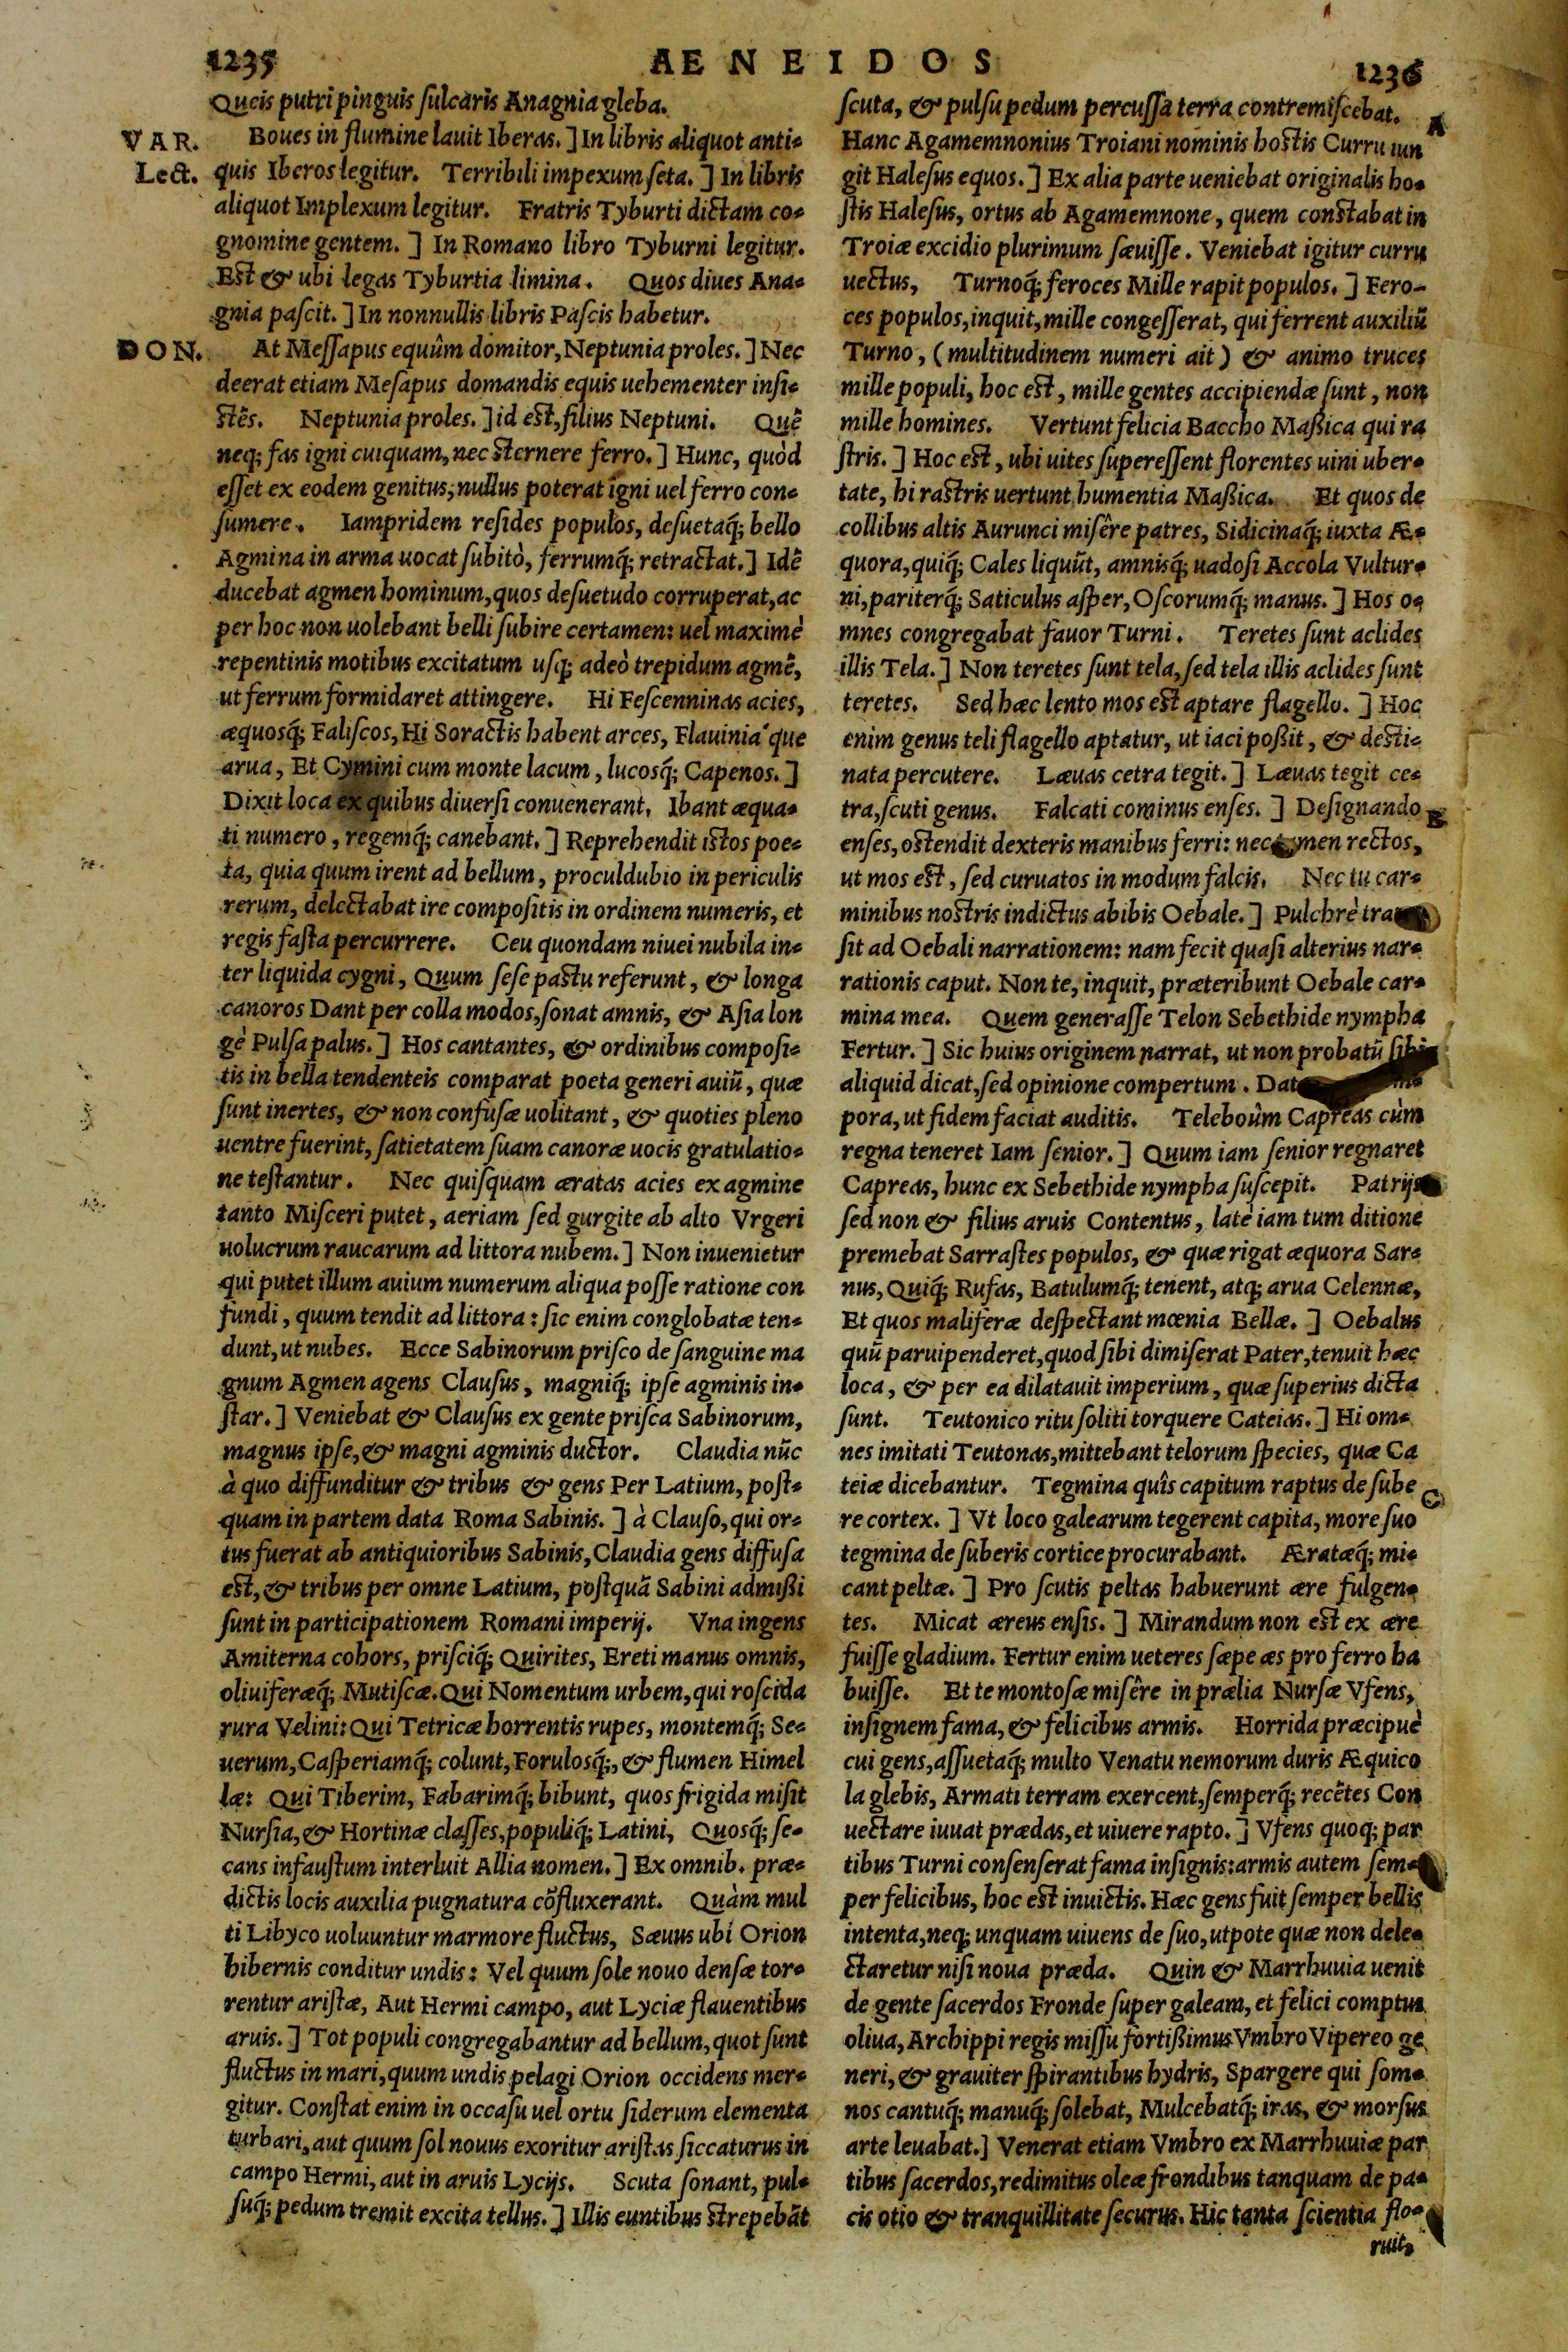 1235
AENEIDOS
1236
Queis putri pinguis sulcaris Anagnia gleba.
VAR.
Lect.
Boues in flumine lauit Iberas.] In libris aliquot anti-
quis Iberos legitur. Terribili impexum seta.] In libris
aliquot Implexum legitur. Fratris Tyburti dictam co-
gnomine gentem.] In Romano libro Tyburni legitur.
Est & ubi legas Tyburtia limina. Quos diues Ana-
gnia pascit.] In nonnullis libris Pascis habetur.
DON.
At Messapus equûm domitor, Neptunia proles.] Nec
deerat etiam Mesapus domandis equis uehementer insi-
stẽs. Neptunia proles.] id est, filius Neptuni. Quẽ
neq; fas igni cuiquam, nec sternere ferro.] Hunc, quòd
esset ex eodem genitus, nullus poterat igni uel ferro con-
sumere. Iampridem resides populos, desuetaq́; bello
Agmina in arma uocat subitò, ferrumq́; retractat.] Idẽ
ducebat agmen hominum, quos desuetudo corruperat, ac
per hoc non uolebant belli subire certamen: uel maximè
repentinis motibus excitatum usq; adeò trepidum agmẽ,
ut ferrum formidaret attingere. Hi Fescenninas acies,
æquosq́; Faliscos, Hi Soractis habent arces, Flauinia´que
arua, Et Cymini cum monte lacum, lucosq́; Capenos.]
Dixit loca ex quibus diuersi conuenerant. Ibant æqua-
ti numero, regemq́; canebant.] Reprehendit istos poe-
ta, quia quum irent ad bellum, proculdubio in periculis
rerum, delectabat ire compositis in ordinem numeris, et
regis fasta percurrere. Ceu quondam niuei nubila in-
ter liquida cygni, Quum sese pastu referunt, & longa
canoros Dant per colla modos, sonat amnis, & Asia lon
gè Pulsa palus.] Hos cantantes, & ordinibus composi-
tis in bella tendenteis comparat poeta generi auiũ, quæ
sunt inertes, & non confusæ uolitant, & quoties pleno
uentre fuerint, satietatem suam canoræ uocis gratulatio-
ne testantur. Nec quisquam æratas acies ex agmine
tanto Misceri putet, aeriam sed gurgite ab alto Vrgeri
uolucrum raucarum ad littora nubem.] Non inuenietur
qui putet illum auium numerum aliqua posse ratione con
fundi, quum tendit ad littora: sic enim conglobatæ ten-
dunt, ut nubes. Ecce Sabinorum prisco de sanguine ma
gnum Agmen agens Clausus, magniq́; ipse agminis in-
star.] Veniebat & Clausus ex gente prisca Sabinorum,
magnus ipse, & magni agminis ductor. Claudia nũc
à quo diffunditur & tribus & gens Per Latium, post-
quam in partem data Roma Sabinis.] à Clauso, qui or-
tus fuerat ab antiquioribus Sabinis, Claudia gens diffusa
est, & tribus per omne Latium, postquã Sabini admißi
sunt in participationem Romani imperij. Vna ingens
Amiterna cohors, prisciq́; Quirites, Ereti manus omnis,
oliuiferæq́; Mutiscæ. Qui Nomentum urbem, qui roscida
rura Velini: Qui Tetricæ horrentis rupes, montemq́; Se-
uerum, Casperiamq́; colunt, Forulosq́;, & flumen Himel
læ: Qui Tiberim, Fabarimq́; bibunt, quos frigida misit
Nursia, & Hortinæ classes, populiq́; Latini, Quosq́; se-
cans infaustum interluit Allia nomen.] Ex omnib. præ-
dictis locis auxilia pugnatura cõfluxerant. Quàm mul
ti Libyco uoluuntur marmore fluctus, Sæuus ubi Orion
hibernis conditur undis: Vel quum sole nouo densæ tor-
rentur aristæ, Aut Hermi campo, aut Lyciæ flauentibus
aruis.] Tot populi congregabantur ad bellum, quot sunt
fluctus in mari, quum undis pelagi Orion occidens mer-
gitur. Constat enim in occasu uel ortu siderum elementa
turbari, aut quum sol nouus exoritur aristas siccaturus in
campo Hermi, aut in aruis Lycijs. Scuta sonant, pul-
suq́; pedum tremit excita tellus.] Illis euntibus strepebãt
scuta, & pulsu pedum percussa terra contremiscebat.
A
Hanc Agamemnonius Troiani nominis hostis Curru iun
git Halesus equos.] Ex alia parte ueniebat originalis ho-
stis Halesus, ortus ab Agamemnone, quem constabat in
Troiæ excidio plurimum sæuisse. Veniebat igitur curru
uectus, Turnoq́; feroces Mille rapit populos.] Fero-
ces populos, inquit, mille congesserat, qui ferrent auxiliũ
Turno, (multitudinem numeri ait) & animo truces
mille populi, hoc est, mille gentes accipiendæ sunt, non
mille homines. Vertunt felicia Baccho Maßica qui ra
stris.] Hoc est, ubi uites superessent florentes uini uber-
tate, hi rastris uertunt humentia Maßica. Et quos de
collibus altis Aurunci misêre patres, Sidicinaq́; iuxta Æ-
quora, quiq́; Cales liquũt, amnisq́; uadosi Accola Vultur-
ni, pariterq́; Saticulus asper, Oscorumq́; manus.] Hos o-
mnes congregabat fauor Turni. Teretes sunt aclides
illis Tela.] Non teretes sunt tela, sed tela illis aclides sunt
teretes. Sed hæc lento mos est aptare flagello.] Hoc
enim genus teli flagello aptatur, ut iaci poßit, & desti-
nata percutere. Læuas cetra tegit.] Læuas tegit ce-
tra, scuti genus. Falcati cominus enses.] Designando
B
enses, ostendit dexteris manibus ferri: nec rectos,
ut mos est, sed curuatos in modum falcis. Nec tu car-
minibus nostris indictus abibis Oebale.] Pulchrè
sit ad Oebali narrationem: nam fecit quasi alterius nar-
rationis caput. Non te, inquit, præteribunt Oebale car-
mina mea. Quem generasse Telon Sebethide nympha
Fertur.] Sic huius originem narrat, ut non probatũ sibi
aliquid dicat, sed opinione compertum.
pora, ut fidem faciat auditis. Teleboûm Capreas cùm
regna teneret Iam senior.] Quum iam senior regnaret
Capreas, hunc ex Sebethide nympha suscepit. Patrijs
sed non & filius aruis Contentus, latè iam tum ditione
premebat Sarrastes populos, & quæ rigat æquora Sar-
nus, Quiq́; Rufas, Batulumq́; tenent, atq; arua Celennæ,
Et quos maliferæ despectant mœnia Bellæ.] Oebalus
quũ paruipenderet, quod sibi dimiserat Pater, tenuit hæc
loca, & per ea dilatauit imperium, quæ superius dicta
sunt. Teutonico ritu soliti torquere Cateias.] Hi om-
nes imitati Teutonas, mittebant telorum species, quæ Ca
teiæ dicebantur. Tegmina quîs capitum raptus de sube
C
re cortex.] Vt loco galearum tegerent capita, more suo
tegmina de suberis cortice procurabant. Æratæq́; mi-
cant peltæ.] Pro scutis peltas habuerunt ære fulgen-
tes. Micat æreus ensis.] Mirandum non est ex ære
fuisse gladium. Fertur enim ueteres sæpe æs pro ferro ha
buisse. Et te montosæ misêre in prælia Nursæ Vfens,
insignem fama, & felicibus armis. Horrida præcipuè
cui gens, assuetaq́; multo Venatu nemorum duris Æquico
la glebis, Armati terram exercent, semperq́; recẽtes Con
uectare iuuat prædas, et uiuere rapto.] Vfens quoq; par
tibus Turni consenserat fama insignis: armis autem sem-
per felicibus, hoc est inuictis. Hæc gens fuit semper bellis
intenta, neq; unquam uiuens de suo, utpote quæ non dele-
ctaretur nisi noua præda. Quin & Marrhuuia uenit
de gente sacerdos Fronde super galeam, et felici comptus
oliua, Archippi regis missu fortißimus Vmbro Vipereo ge
neri, & grauiter spirantibus hydris, Spargere qui som-
nos cantuq́; manuq́; solebat, Mulcebatq́; iras, & morsus
arte leuabat.] Venerat etiam Vmbro ex Marrhuuiæ par
tibus sacerdos, redimitus oleæ frondibus tanquam de pa-
cis otio & tranquillitate securus. Hic tanta scientia flo-
ruit,